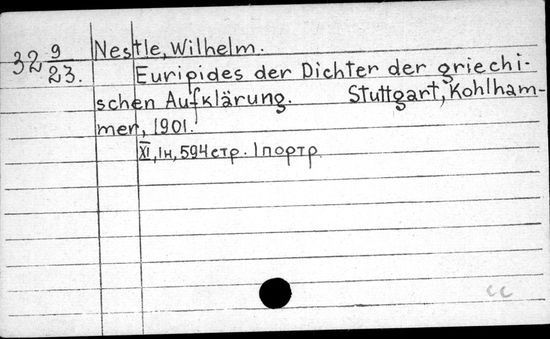 32 9/23.
Nestle, Wilhelm.
Euripides der Dichter der griechi-
schen Aufklärung. Stuttgart, Kohlham-
mer, 1901.
XI, 1н, 594 стр. 1 портр.